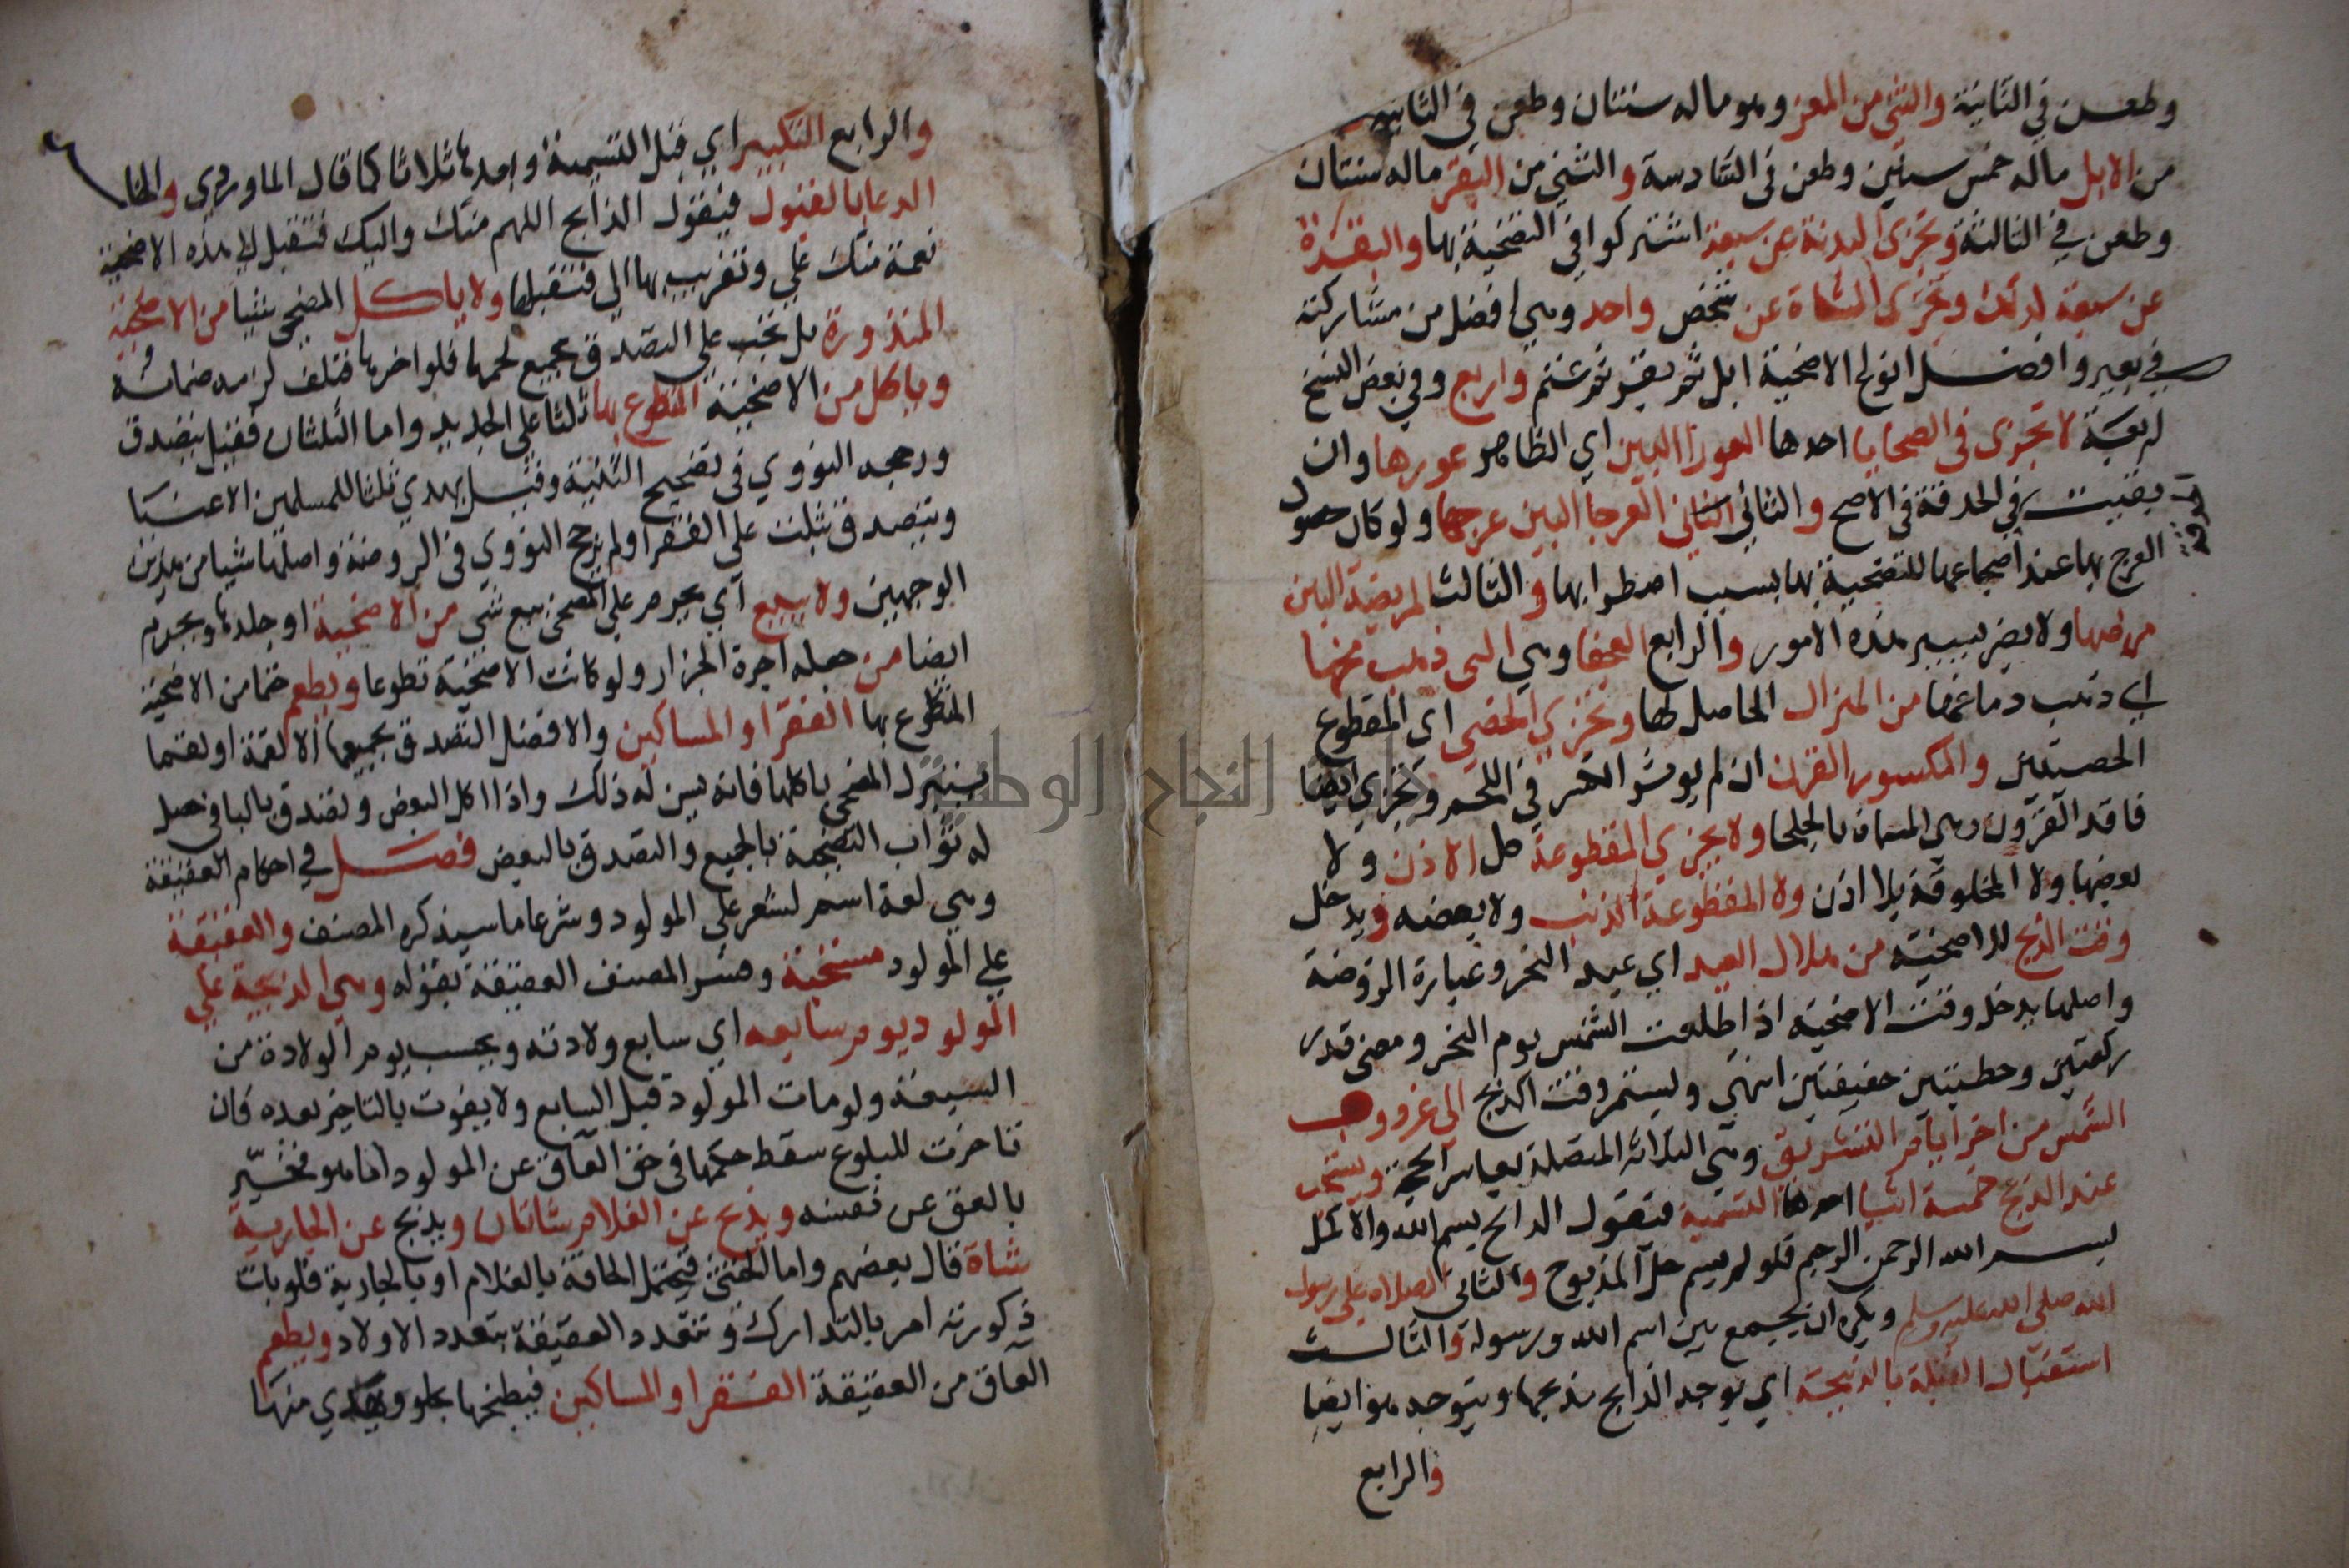 وطعن في الثانية والثني من المعز وهو ماله سنتان وطعن في الثانيه
من الابل ماله خمس سنين وطعن في السادسة والثني من البقر ماله سنتان
وطعن في الثالثة وتجزي البدنة عن سبعة اشتركوا في التضحية بها والبقرة
عن سبعة لذلك وتجزى الشاة عن شخص واحد وهي افضل من مشاركته
في بعير وافضل انواع الاضحية ابل ثم بقر ثم غنم واربع وفي بعض النسخ
اربعة لا تجزى في الضحايا احدها العورا البين اي الظاهر عورها وان
بقيت الحدقة في الاصح والثاني العرجا البين عرجها ولو كان حصول
العرج بها عند اضجاعها للتضحية بها بسبب اضطرابها والثالث المريضة البين
مرضها ولا يضر يسير هذه الامور والرابع العجفا وهي التى ذهب مخها
اي ذهب دماغها من الهزال الحاصل لها وتجزي الخصي اي المقطوع
الخصيتين والمكسور القرن ان لم يوثر الكسر في اللحم وتجزي ايضا
فاقد القرون وهى المسماة بالجلحا ولا يجزي المقطوعة كل الاذن ولا
بعضها ولا المخلوقة بلا اذن ولا المقطوعة الذنب ولا بعضه ويدخل
وقت الذبح للاضحية من هلال العيد اي عيد النحر وعبارة الروضة
واصلها يدخل وقت الاضحية اذا طلعت الشمس يوم النحر ومضى قدر
ركعتين وخطبتين خفيفتين انتهى ويستمر وقت الذبح الى غروب
الشمس من اخر ايام التشريق وهي الثلاثة المتصلة بعاشر الحجة ويستحب
عند الذبح خمسة اشيا احدها التسمية فيقول الذابح بسم الله والاكمل
بسم الله الرحمن الرحيم فلو لم يسم حل المذبوح والثاني الصلاة على رسول
الله صلى الله عليه وسلم ويكره ان يجمع بين اسم الله ورسوله والثالث
استقبال القبلة بالذبيحة اي يوجه الذابح مذبحها ويتوجه هو ايضا
والرابع
والرابع التكبير اي قبل التسمية وبعدها ثلاثا كما قال الماوردي والخا
الدعا بالقبول فيقول الذابح اللهم منك واليك فتقبل اي هذه الاضحية
نعمة منك علي وتقربت بها الي فتقبلها ولا ياكل المضحي شيا من الاضحية
المنذورة بل يجب علي التصدق بجميع لحمها فلو اخرها فتلف لزمه ضمانه
وياكل من الاضحية المتطوع بها ثلثا على الجديد واما الثلثان فقيل يتصدق
ورجحه النووي في تصحيح التنبيه وقيل يهدي ثلثا للمسلمين الاغنيا
ويتصدق بثلث على الفقرا ولم يرجح النووي في الروضة واصلها شيا من هذين
الوجهين ولا يبيع اي يحرم على المضحي بيع شي من الاضحية او جلدها ويحرم
ايضا من جعله اجرة الجزار ولو كانت الاضحية تطوعا ويطعم حتما من الاضحية
المتطوع بها الفقرا والمساكين والافضل التصدق بجميعها الا لقمة او لقما
يتبرك المضحي باكلها فانه يسن له ذلك واذا اكل البعض وتصدق بالباقي حصل
له ثواب التضحية بالجميع والتصدق بالبعض فصل في احكام العقيقة
وهي لغة اسم لشعر على المولود وشرعا ما سيذكره المصنف والعقيقة
علي المولود مستحبة وفسر المصنف العقيقة بقوله وهي الذبيحة على
المولود يوم سابعه اي سابع ولادته ويحسب يوم الولادة من
السبعة ولو مات المولود قبل السابع ولا يفوت بالتاخير بعده فان
تاخرت للبلوغ سقط حكمها في حق العاق عن المولود اما هو فمخير
بالعق عن نفسه ويذبح عن الغلام شاتان ويذبح عن الجارية
شاة قال بعضهم واما الخنثى فيحتمل الحاقه بالغلام او بالجارية فلو بانت
ذكورته امر بالتدارك وتتعدد العقيقة بتعدد الاولاد ويطعم
العاق من العقيقة الفقرا والمساكين فيطبخها بحلو ويهدي منها
النجاح الوطنية